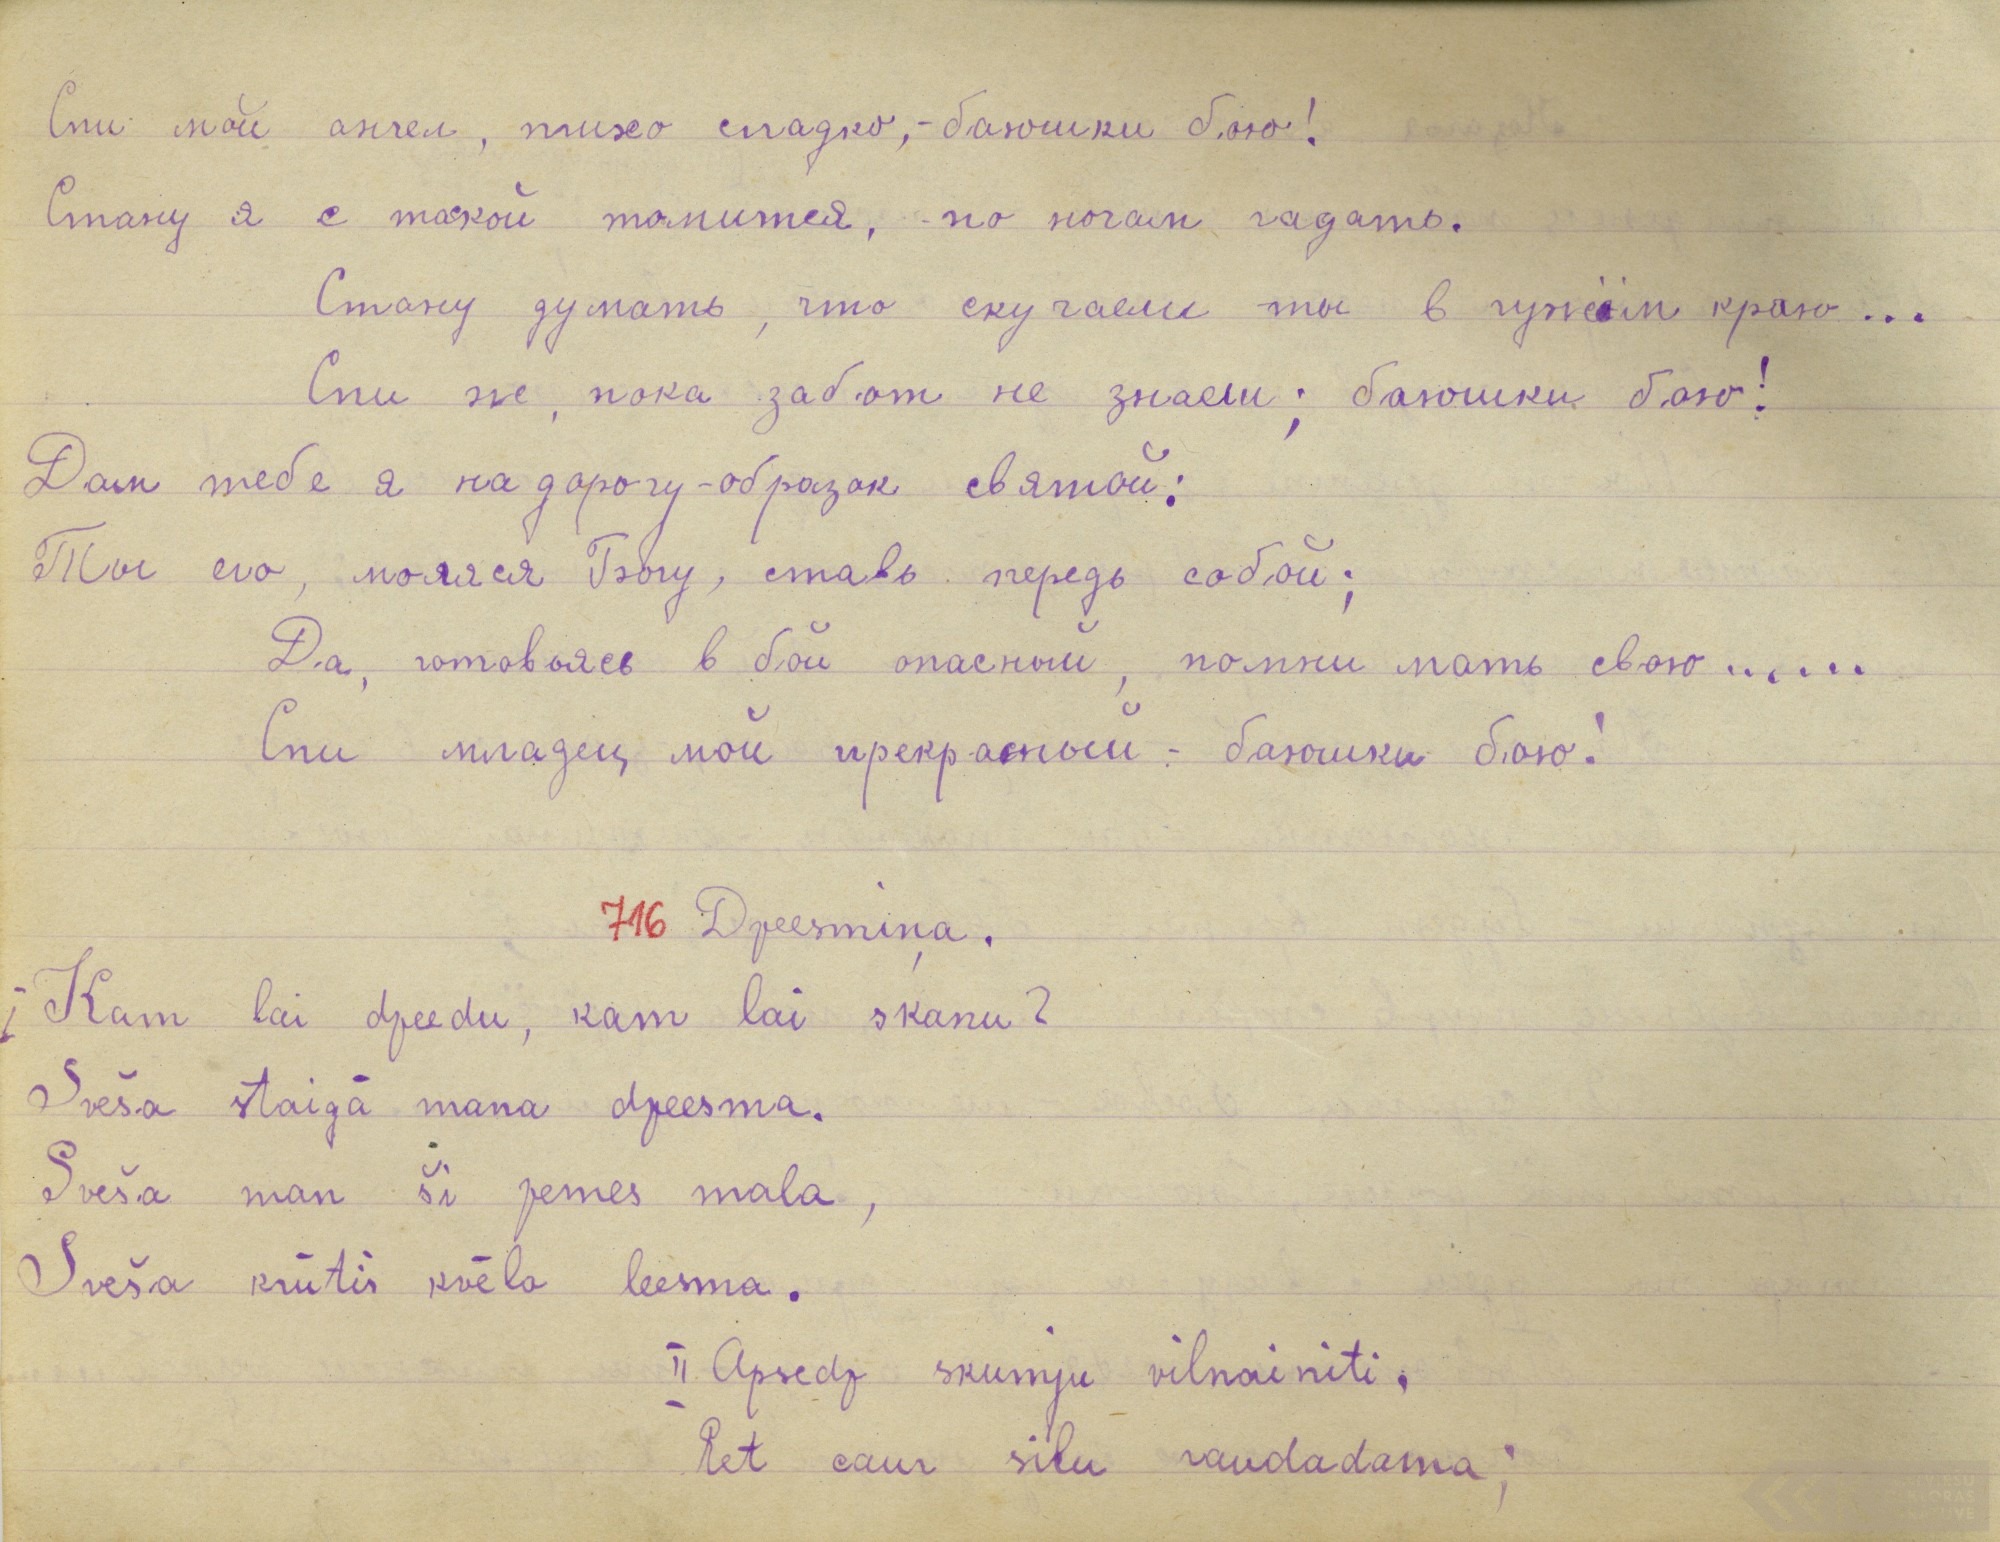 Спи мой ангел, тихо сладко,-баюшки баю!
Стану я с такой томится, - по ночам гадать.
Стану думать, что скучаеш ты в чужом краю...
Спи же, пока забот не знаеш; баюшки баю!
Дам тебе я на дорогу-образок святой:
Ты его, моляся Богу, ставь передь собой;
Да, готовьясь в бой опасный, помни мать свою......
Спи младец мой прекрасный - баюшки баю!
716 Dzeesmiņa.
I Kam lai dzeedu, kam lai skanu?
Sveša staigā mana dzeesma.
Sveša man ši zemes mala,
Sveša krūtis kvēla leesma.
II Apsedz skumju vilnainiti,
Eet caur silu raudadama;